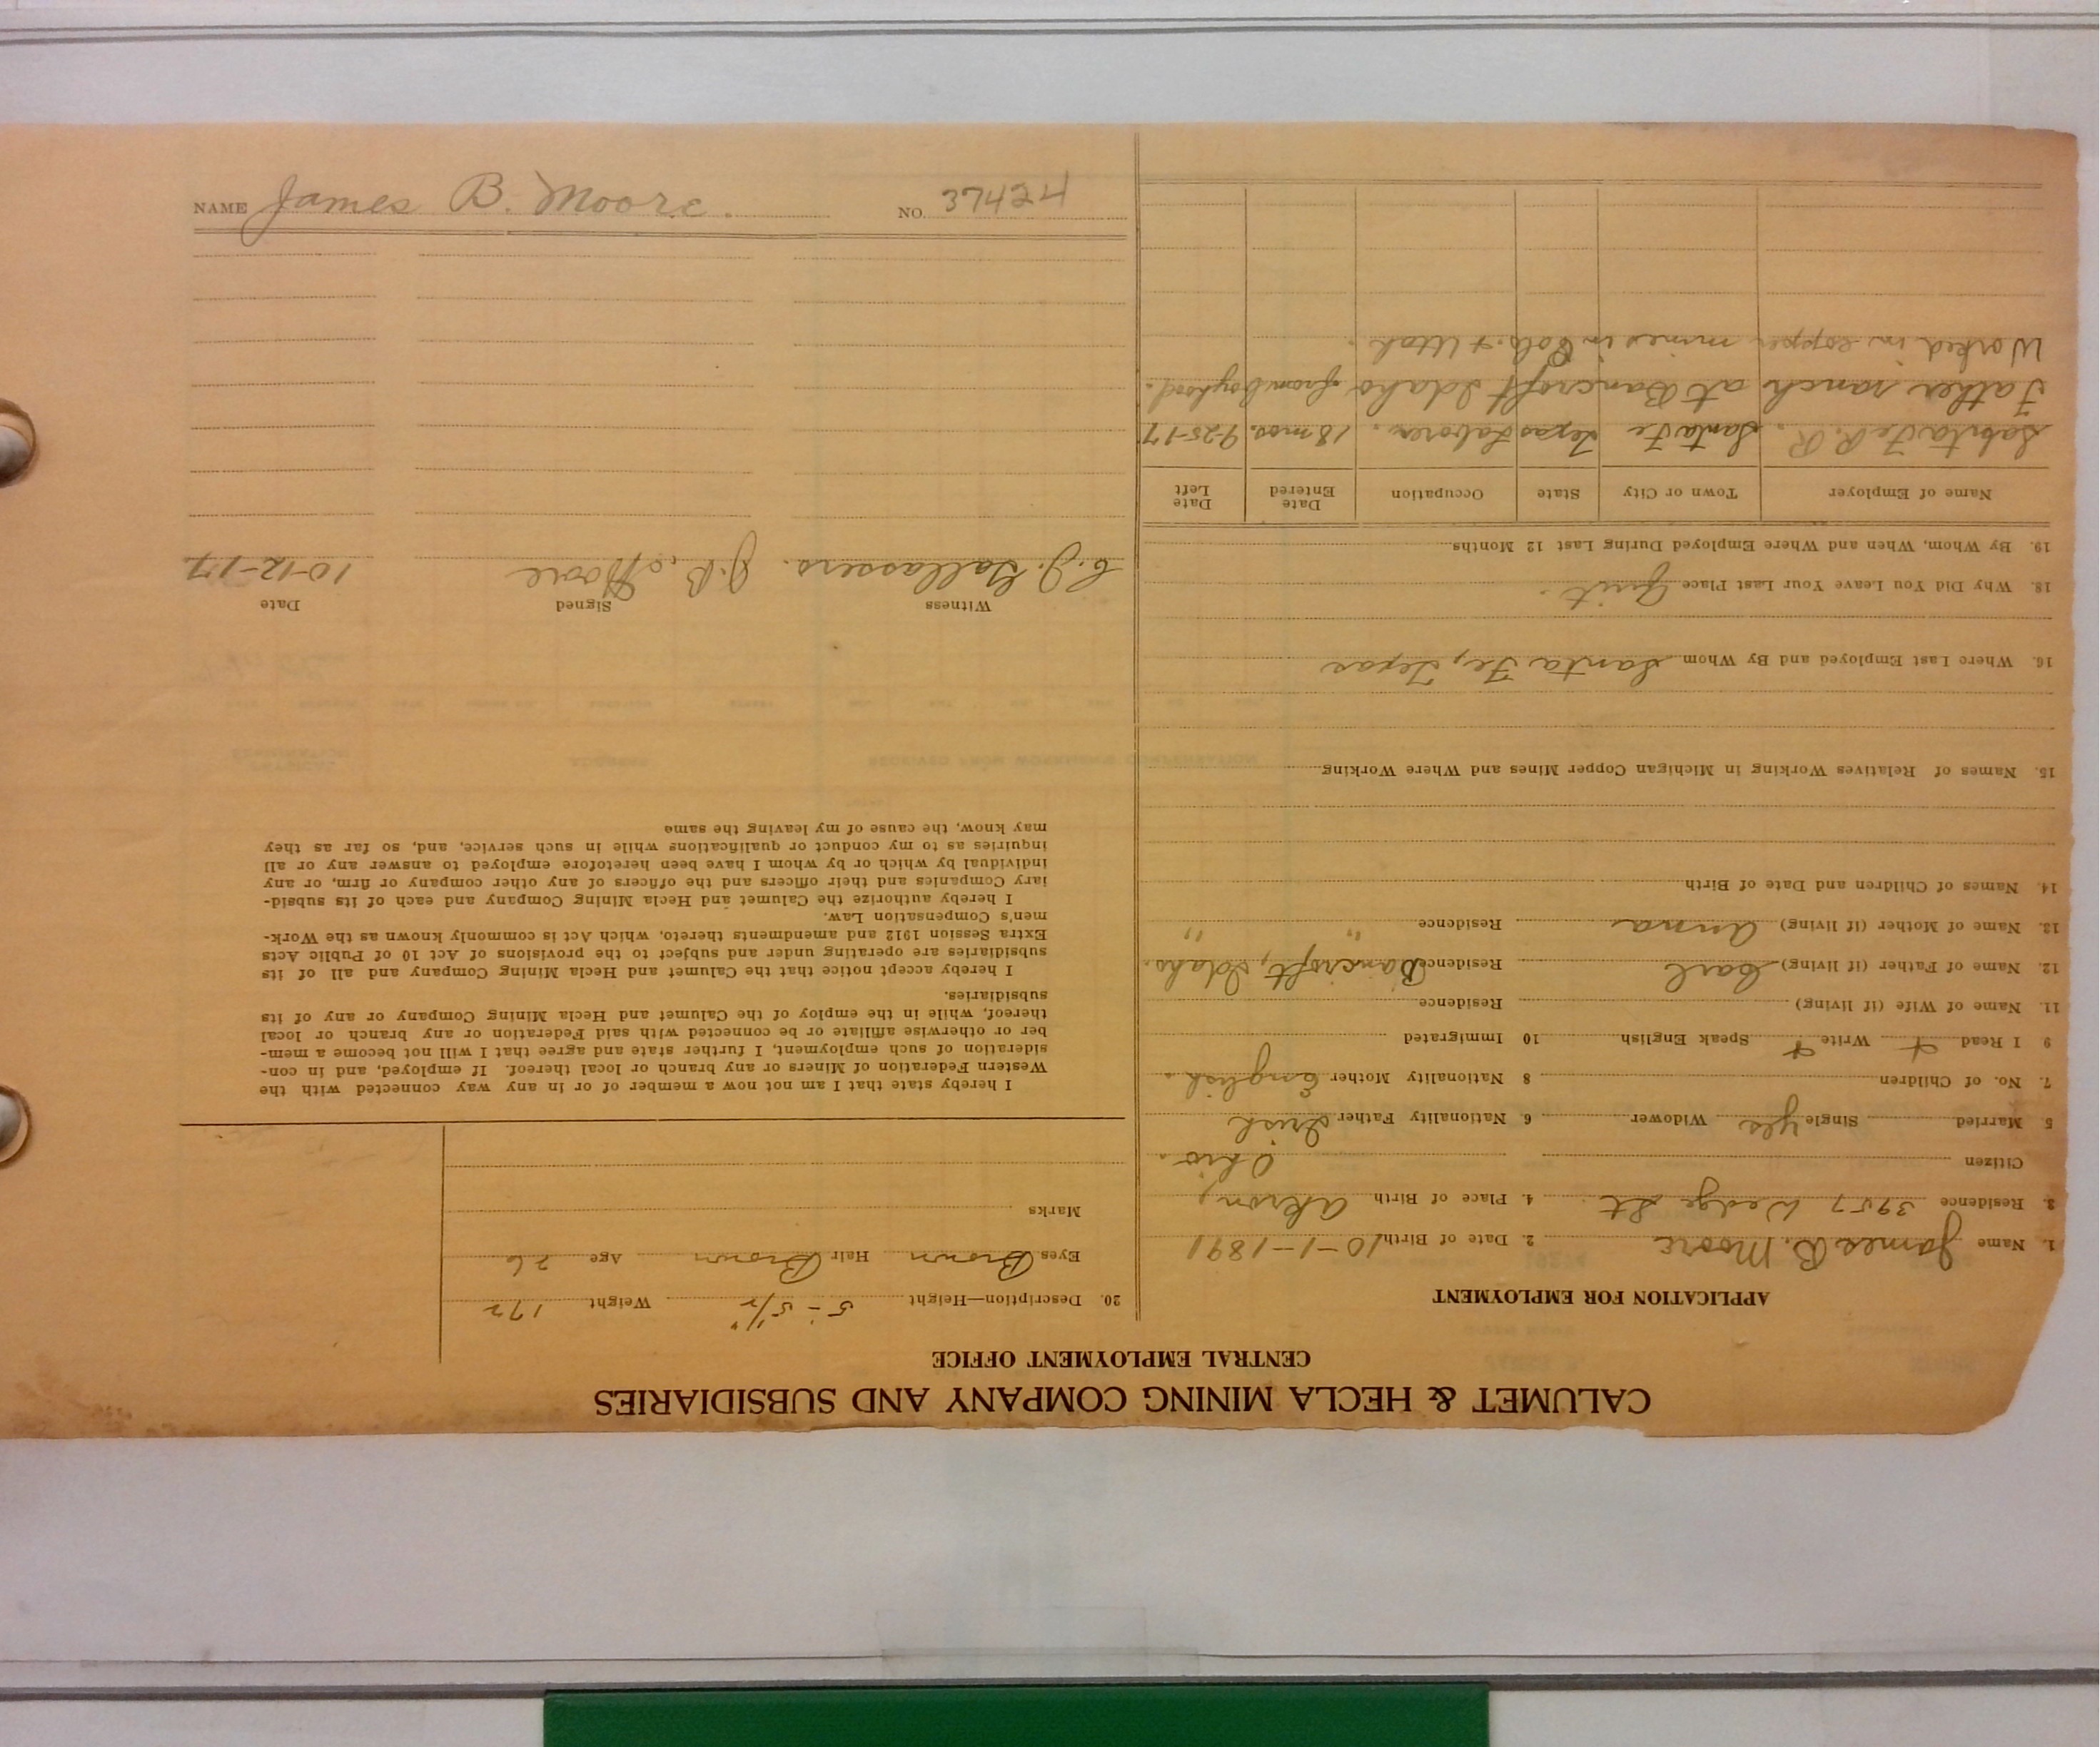 CALUMET & HECLA MINING COMPANY AND SUBSIDIARIES
CENTRAL EMPLOYMENT OFFICE
APPLICATION FOR EMPLOYMENT
1. Name James B. Moore 2. Date of Birth 10-1-1891
3. Residence 3957 Wedge St. 4. Place of Birth Akron,
Citizen Ohio.
5 Married Single yes Widower 6 Nationality Father Irish
7. No. of Children 8 Nationality Mother English.
9 I Read + Write + Speak English 10 Immigrated
11. Name of Wife (if living) Residence
12. Name of Father (if living) Carl Residence Bancroft, Idaho.
13. Name of Mother (if living) Anna Residence " "
14. Names of Children and Date of Birth
15. Names of Relatives Working in Michigan Copper Mines and Where Working
16. Where Last Employed and By Whom Santa Fe, Texas
18. Why Did You Leave Your Last Place Quit.
19. By Whom, When and Where Employed During Last 12 Months
Name of Employer Town or City State Occupation Date Entered Date Left
Santa Fe R.R. Santa Fe Texas Laborer. 18 mos. 9-25-17
Father ranch at Bancroft Idaho from boyhood.
Worked in copper mines in Colo. + Utah.
20. Description—Height 5'-5 1/2" Weight 172
Eyes Brown Hair Brown Age 26
Marks
I hereby state that I am not now a member of or in any way connected with the
Western Federation of Miners or any branch or local thereof. If employed, and in con-
sideration of such employment, I further state and agree that I will not become a mem-
ber or otherwise affiliate or be connected with said Federation or any branch or local
thereof, while in the employ of the Calumet and Hecla Mining Company or any of its
subsidiaries.
I hereby accept notice that the Calumet and Hecla Mining Company and all of its
subsidiaries are operating under and subject to the provisions of Act 10 of Public Acts
Extra Session 1912 and amendments thereto, which Act is commonly known as the Work-
men's Compensation Law.
I hereby authorize the Calumet and Hecla Mining Company and each of its subsid-
iary Companies and their officers and the officers of any other company or firm, or any
individual by which or by whom I have been heretofore employed to answer any or all
inquiries as to my conduct or qualifications while in such service, and, so far as they
may know, the cause of my leaving the same
Witness Signed Date
C. J. J. B. Moore 10-12-17
NAME James B. Moore. NO. 37424